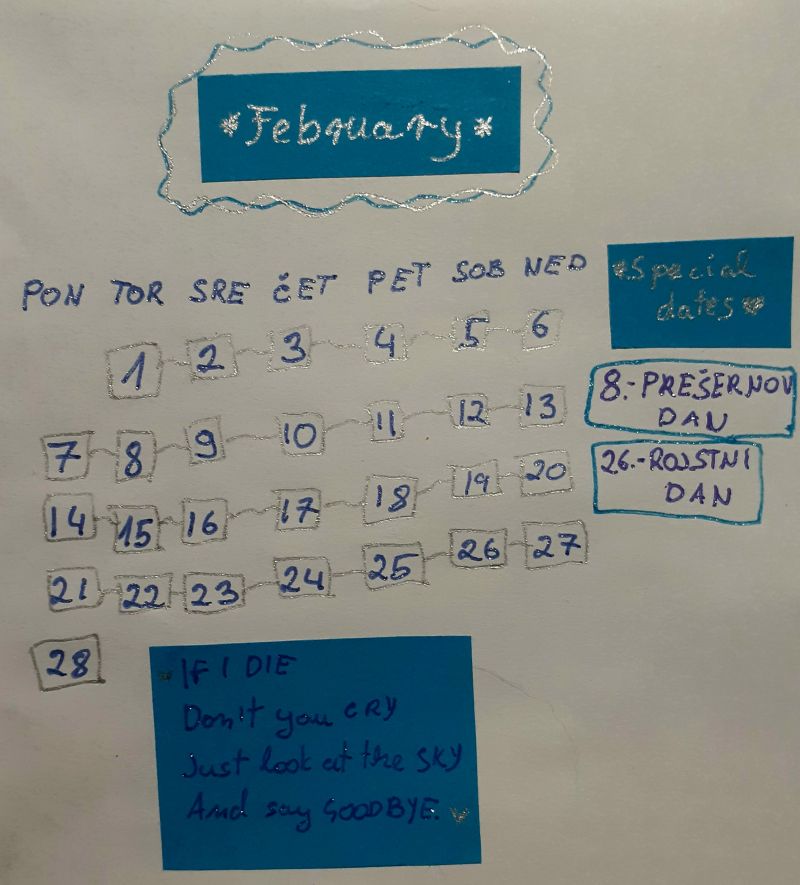 *February*
PON TOR SRE ČET PET SOB NED
1 2 3 4 5 6
7 8 9 10 11 12 13
14 15 16 17 18 19 20
21 22 23 24 25 26 27
28
Special
dates
8.-PREŠERNOV
DAN
26.-ROJSTNI
DAN
IF I DIE
Don't you CRY
Just look at the SKY
And say GOODBYE.